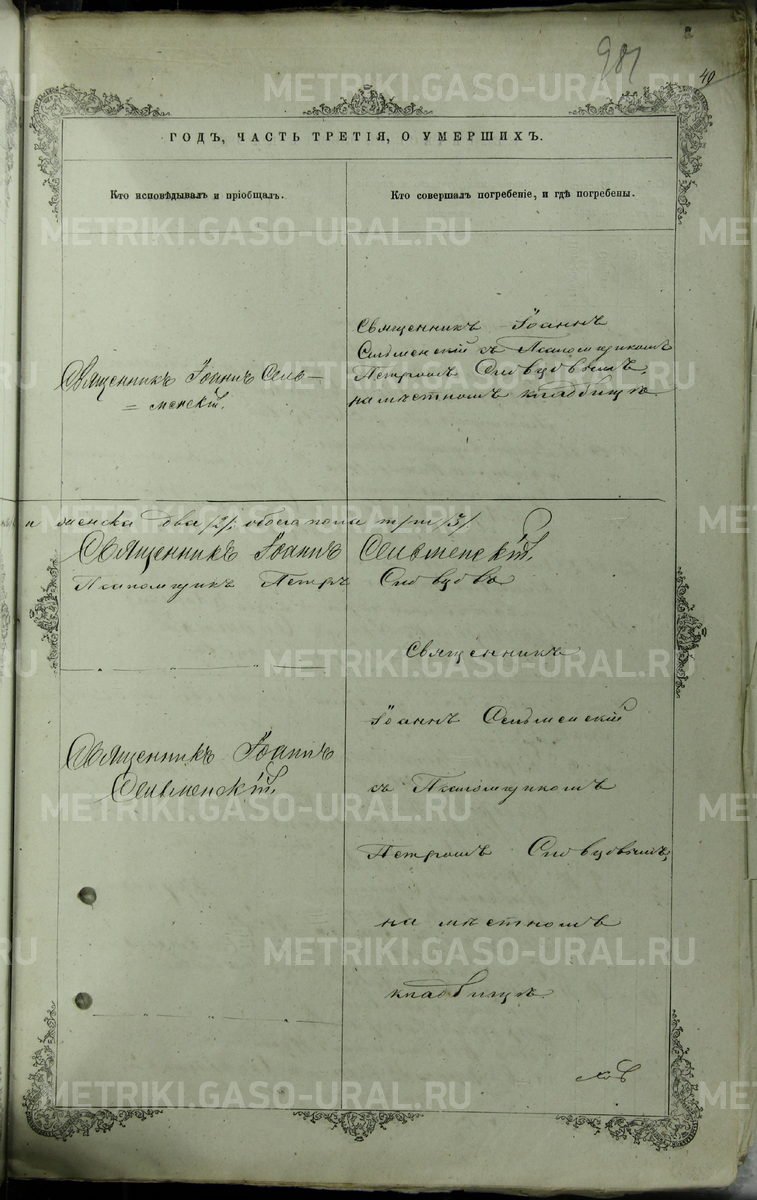 981
40
ГОДЪ, ЧАСТЬ ТРЕТІЯ, О УМЕРШИХЪ.
Кто исповѣдывалъ и пріобщалъ.
Кто совершалъ погребеніе, и гдѣ погребены.
Священникъ Іоаннъ Сель-
=менскій.
Священникъ Іоаннъ
Сельменскій съ Псаломщикомъ
Петромъ
на мѣстномъ кладбищѣ.
и женска два /2/. обоего пола три /3/.
Священникъ Іоаннъ Сельменскій.
Псаломщикъ Петръ
Священникъ
Іоаннъ Сельменскій
Священникъ Іоаннъ
Сельменскій.
съ Псаломщикомъ
Петромъ
на мѣстномъ
кладбищѣ.
METRIKI.GASO-URAL.RU